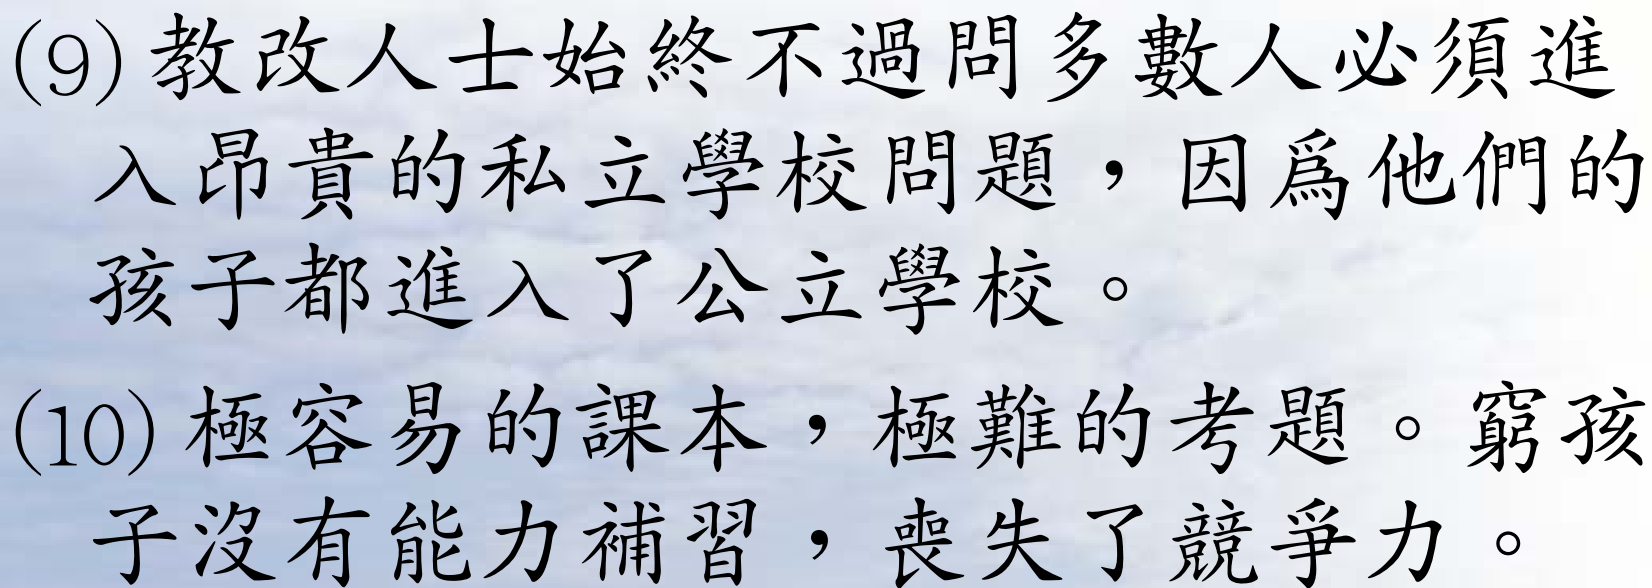 (9)教改人士始終不過問多數人必須進
入昂貴的私立學校問題，因爲他們的
孩子都進入了公立學校。
(10)極容易的課本，極難的考題。窮孩
子沒有能力補習，喪失了競爭力。